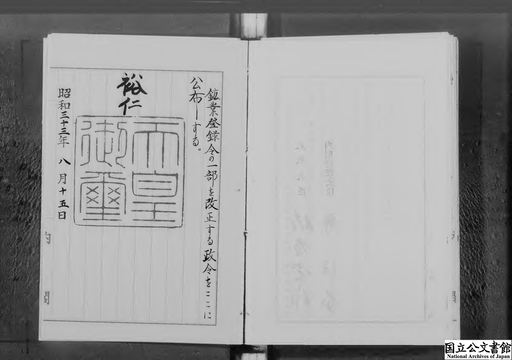 鉱業登録令の一部を改正する政令をここに
公布する。
裕仁
天皇
御璽
昭和三十三年 八月十五日
国立公文書館
National Archives of Japan